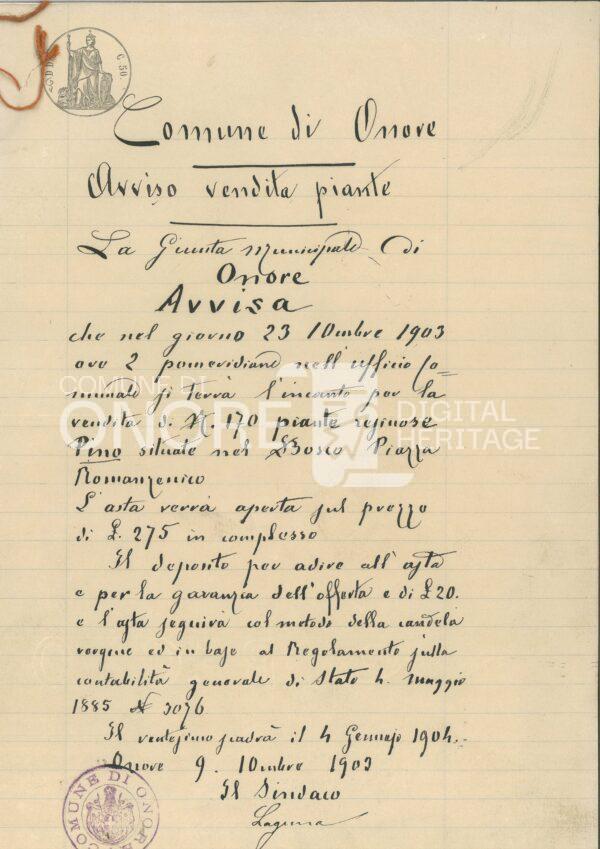 C. 50
Comune di Onore
Avviso vendita piante
La Giunta Municipale di
Onore
Avvisa
che nel giorno 23 10mbre 1903
ore 2 pomeridiane nell'ufficio Co=
munale si terrà l'incanto per la
vendita di N. 170 piante resinose
Pino situate nel Bosco Piazza
Romanzenico
L'asta verrà aperta sul prezzo
di £. 275 in complesso
Il deposito per adire all'asta
e per la garanzia dell'offerta e di £ 20.
e l'asta seguirà col metodo della candela
vergine ed in base al Regolamento sulla
contabilità generale di Stato 4. maggio
1885 N 3076
Il ventesimo scadrà il 4 Gennajo 1904.
Onore 9. 10mbre 1903
Il Sindaco
COMUNE DI ONORE
COMUNE DI
ONORE
DIGITAL
HERITAGE